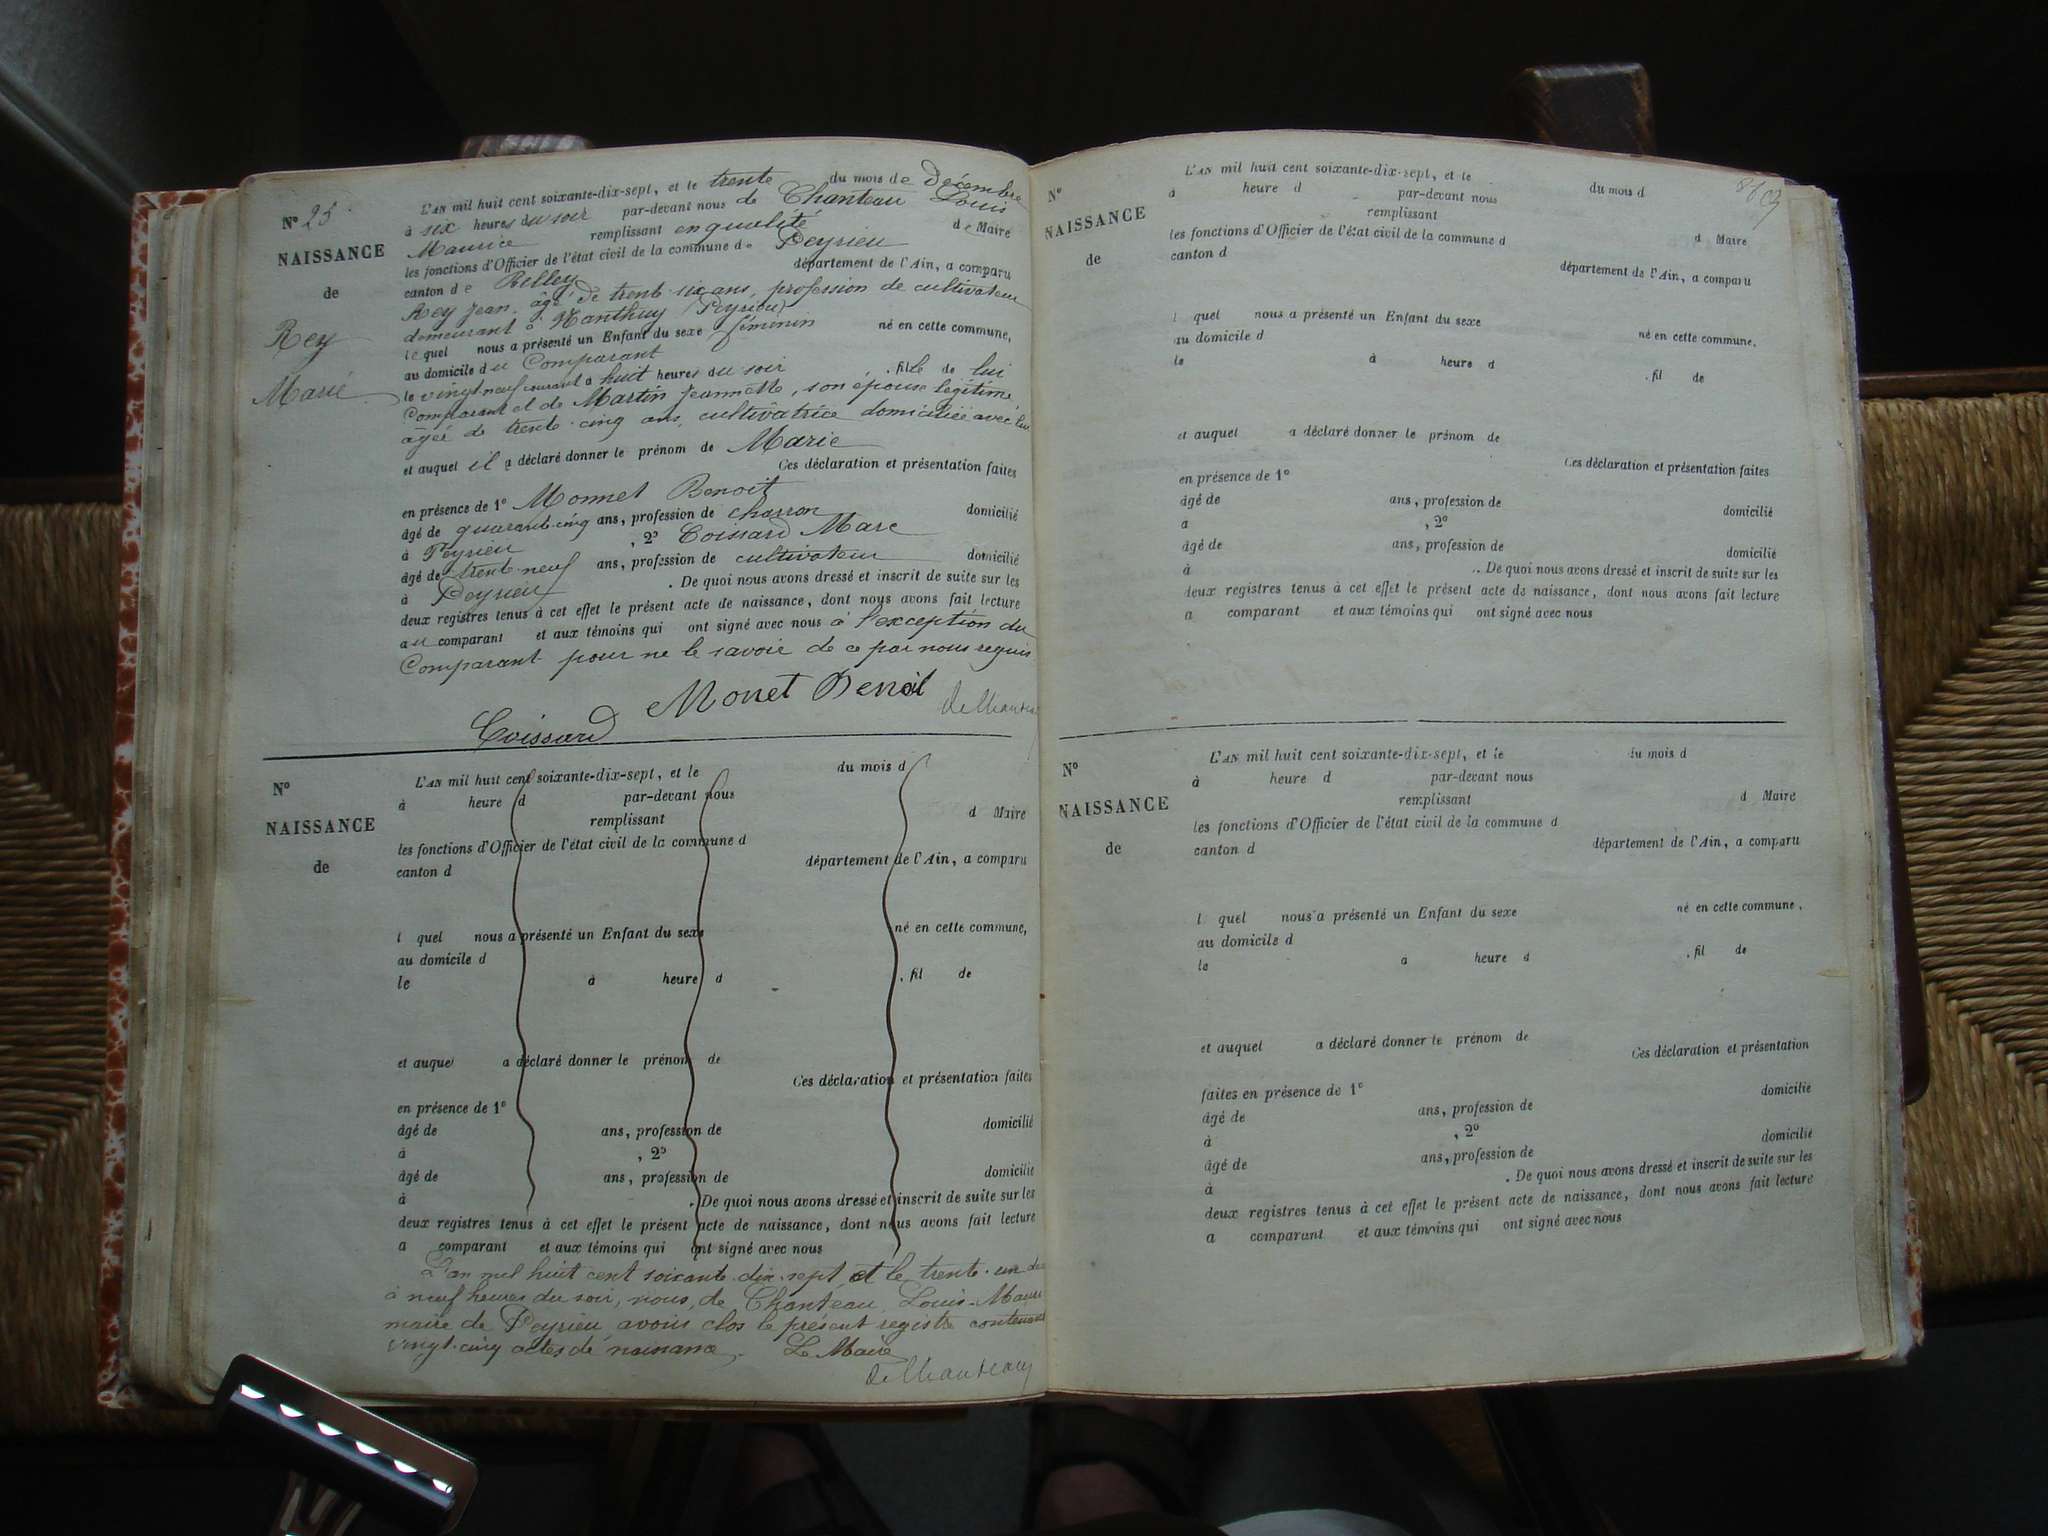 N° 25
NAISSANCE
de
Rey
Marie
L'AN mil huit cent soixante-dix-sept, et le trente du mois de Décembre
à six heures du soir par-devant nous de Chanteau Louis
Maurice remplissant en qualité de Maire
les fonctions d'Officier de l'état civil de la commune de Peyrieu
canton de Belley département de l'Ain, a comparu
Rey Jean, âgé de trente-six ans, profession de cultivateur
demeurant à Nanthuy (Peyrieu)
le quel nous a présenté un Enfant du sexe féminin né en cette commune,
au domicile du Comparant
le vingt-neuf courant à huit heures du soir , fille de lui
Comparant et de Martin Jeannette, son épouse légitime,
âgée de trente-cinq ans, cultivatrice domiciliée avec lui
et auquel il a déclaré donner le prénom de Marie
Ces déclaration et présentation faites
en présence de 1° Monnet Benoit
âgé de quarante-cinq ans, profession de charron domicilié
à Peyrieu , 2° Coissard Marc
âgé de trente-neuf ans, profession de cultivateur domicilié
à Peyrieu . De quoi nous avons dressé et inscrit de suite sur les
deux registres tenus à cet effet le présent acte de naissance, dont nous avons fait lecture
au comparant et aux témoins qui ont signé avec nous à l'exception du
Comparant pour ne le savoir de ce par nous requis
Monet Benoit
Coissard
N°
NAISSANCE
de
L'AN mil huit cent soixante-dix-sept, et le du mois d
à heure d par-devant nous
remplissant d Maire
les fonctions d'Officier de l'état civil de la commune d
canton d département de l'Ain, a comparu
l quel nous a présenté un Enfant du sexe né en cette commune,
au domicile d
le à heure d , fil de
et auquel a déclaré donner le prénom de
Ces déclaration et présentation faites
en présence de 1°
âgé de ans, profession de domicilié
à , 2°
âgé de ans, profession de domicilié
à . De quoi nous avons dressé et inscrit de suite sur les
deux registres tenus à cet effet le présent acte de naissance, dont nous avons fait lecture
a comparant et aux témoins qui ont signé avec nous
L'an mil huit cent soixante-dix-sept et le trente-un
à neuf heures du soir, nous, de Chanteau, Louis-Maurice
maire de Peyrieu, avons clos le présent registre contenant
vingt-cinq actes de naissance. Le Maire
de Chanteau
N°
NAISSANCE
de
L'AN mil huit cent soixante-dix-sept, et le du mois d
à heure d par-devant nous
remplissant d Maire
les fonctions d'Officier de l'état civil de la commune d
canton d département de l'Ain, a comparu
l quel nous a présenté un Enfant du sexe né en cette commune,
au domicile d
le à heure d , fil de
et auquel a déclaré donner le prénom de
Ces déclaration et présentation faites
en présence de 1°
âgé de ans, profession de domicilié
à , 2°
âgé de ans, profession de domicilié
à . De quoi nous avons dressé et inscrit de suite sur les
deux registres tenus à cet effet le présent acte de naissance, dont nous avons fait lecture
a comparant et aux témoins qui ont signé avec nous
N°
NAISSANCE
de
L'AN mil huit cent soixante-dix-sept, et le du mois d
à heure d par-devant nous
remplissant d Maire
les fonctions d'Officier de l'état civil de la commune d
canton d département de l'Ain, a comparu
l quel nous a présenté un Enfant du sexe né en cette commune,
au domicile d
le à heure d , fil de
et auquel a déclaré donner le prénom de
Ces déclaration et présentation
faites en présence de 1°
âgé de ans, profession de domicilié
à , 2°
âgé de ans, profession de domicilié
à . De quoi nous avons dressé et inscrit de suite sur les
deux registres tenus à cet effet le présent acte de naissance, dont nous avons fait lecture
a comparant et aux témoins qui ont signé avec nous